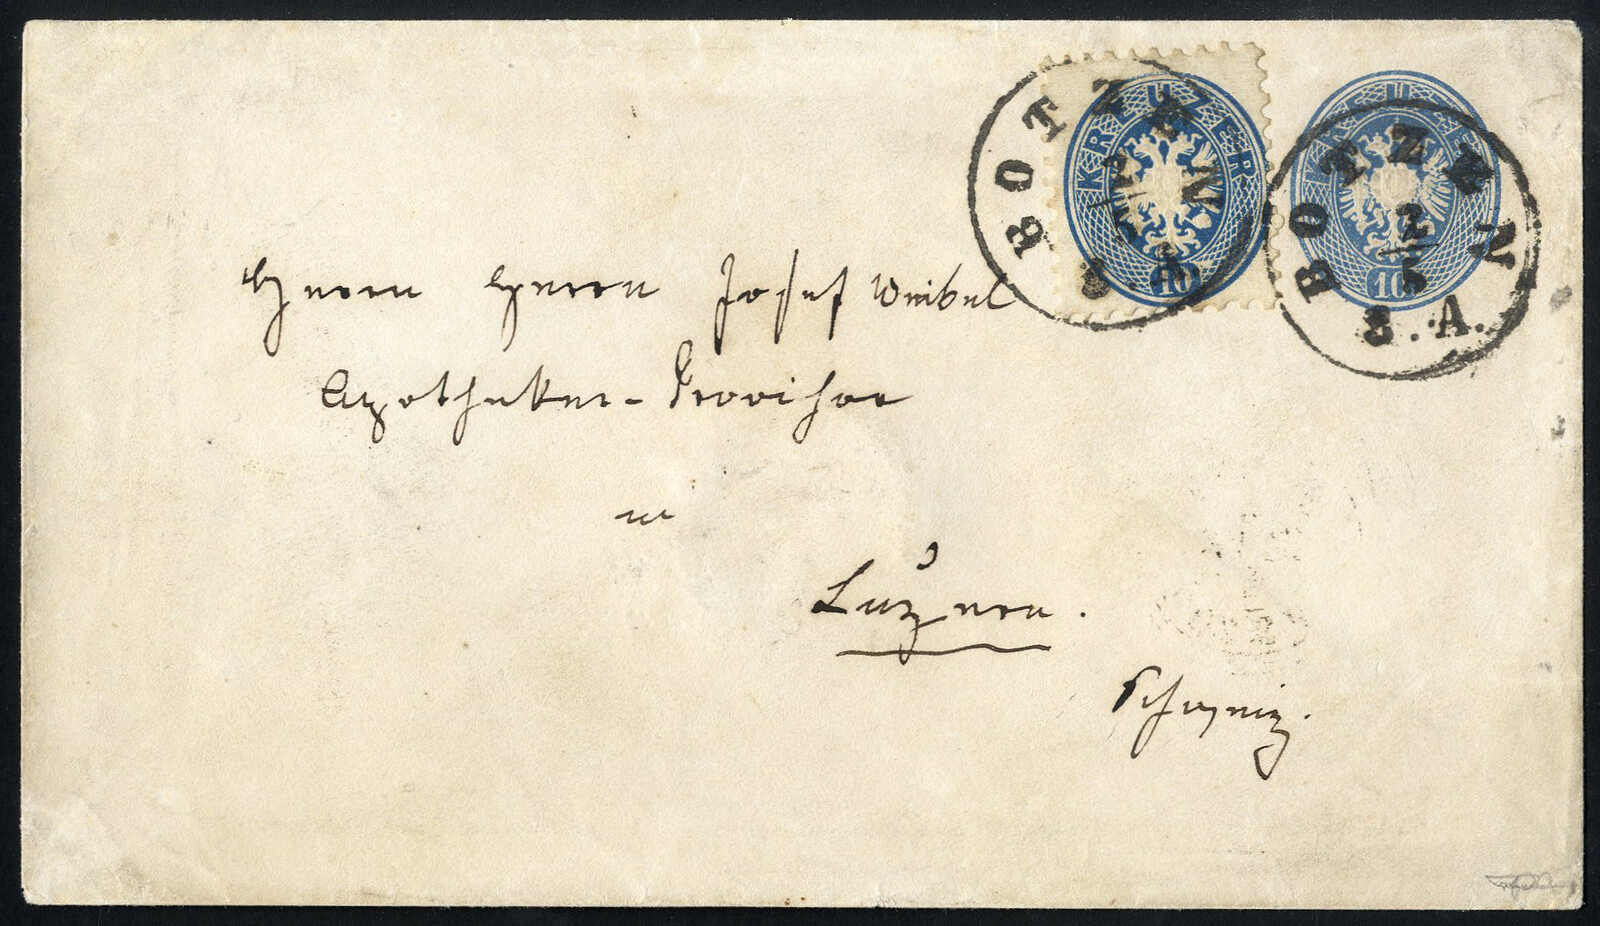 KREUZER
10
BOTZEN
2
5
S.A.
KREUZER
10
BOTZEN
2
5
S.A.
Herrn Herrn Josef Weibel
Apotheker-Provisor
in
Luzern.
Schweiz.